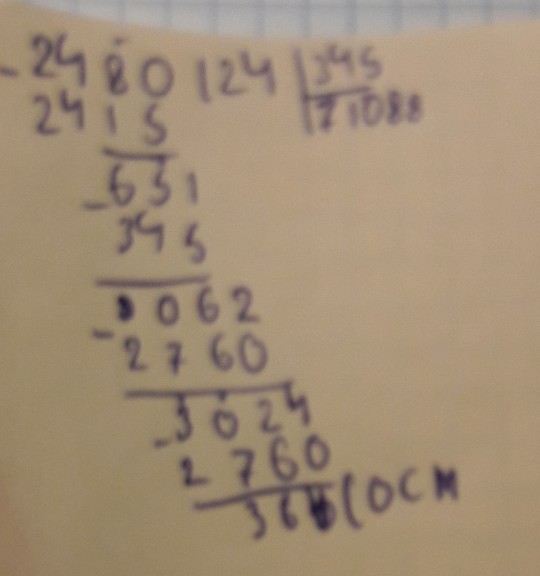 - 2480124 | 345
2415 | 71088
- 651
345
- 3062
2760
- 3024
2760
(ОСН